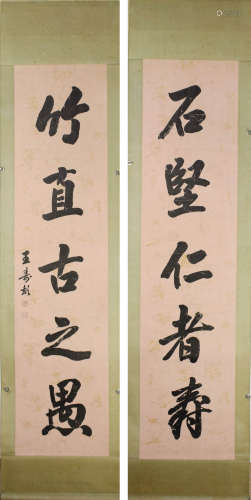 石堅仁者壽
竹直古之愚
王壽彭